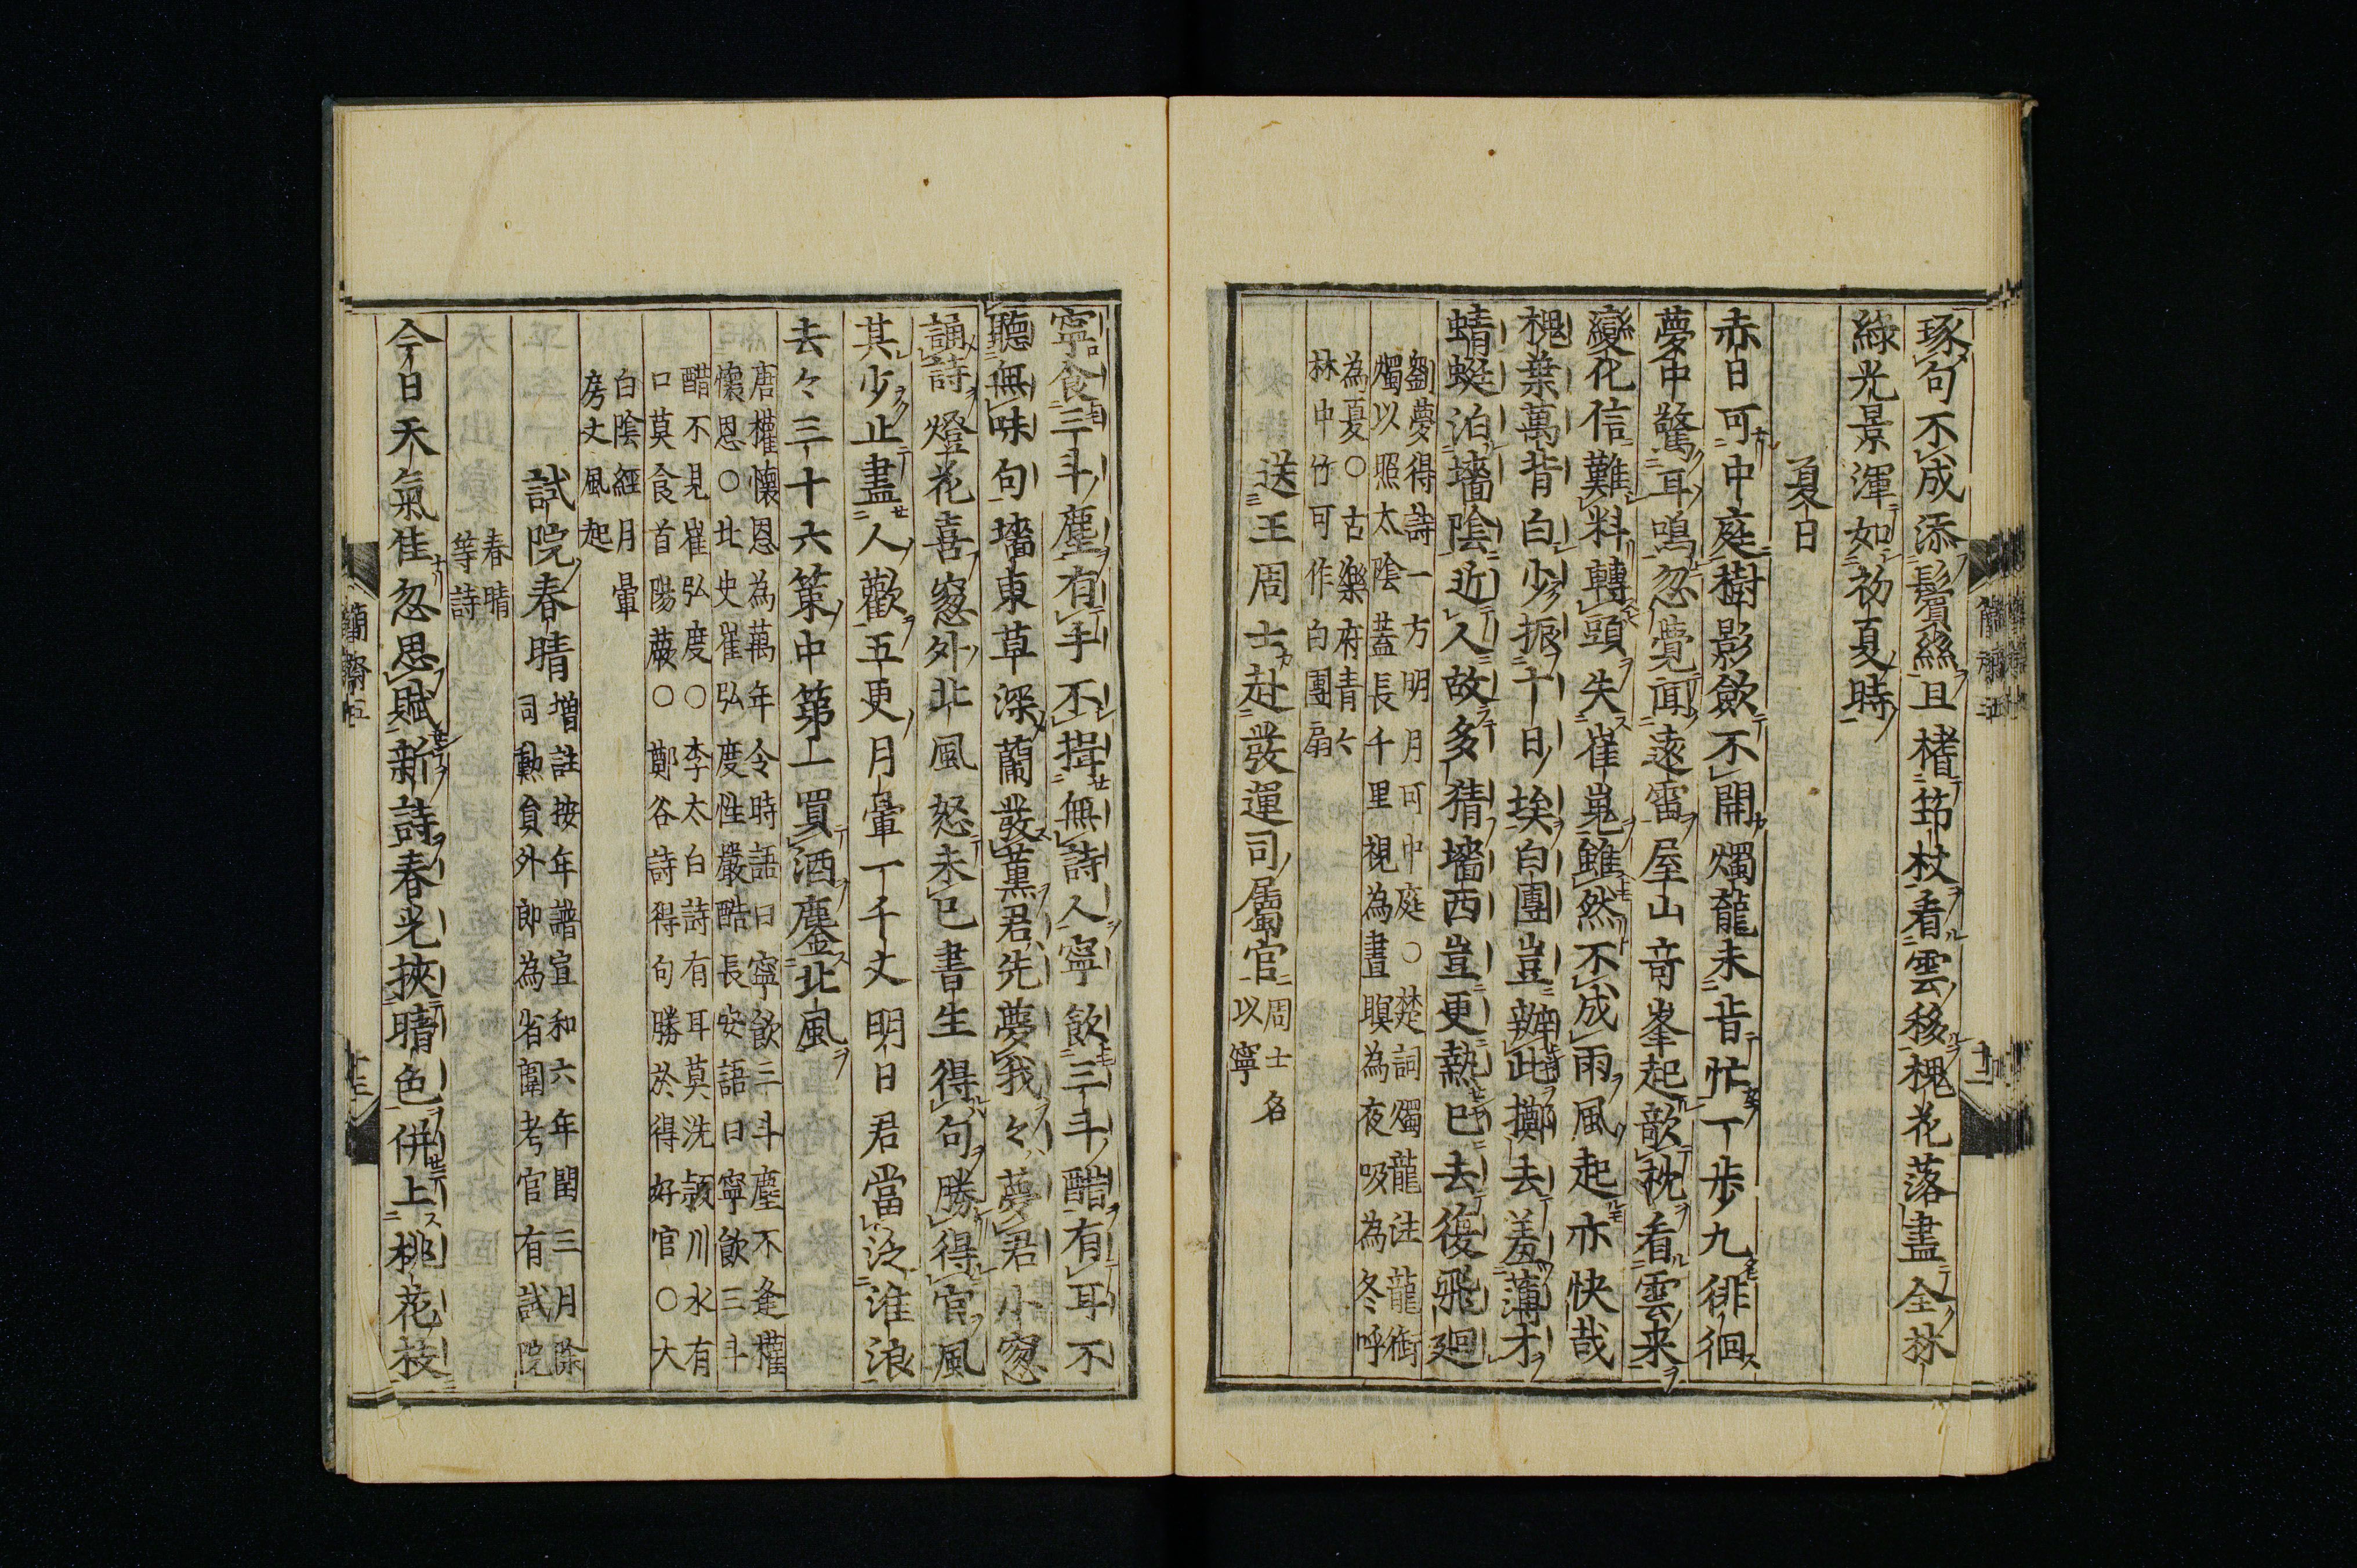 琢句不成添鬢絲且榰筇杖看雲移槐花落盡全林
綠光景渾如初夏時
夏日
赤日可中庭樹影斂不開燭龍未肯忙一步九徘徊
夢中驚耳鳴忽覺聞遠雷屋山奇峯起欹枕看雲来
變化信難料轉頭失崔嵬雖然不成雨風起亦快哉
槐葉萬背白少振十日埃白團豈辦此擲去羞薄才
蜻蜓泊墻陰近人故多猜墻西豈更熱已去復飛廻
劉夢得詩一方明月可中庭○楚詞燭龍注龍銜
燭以照太陰蓋長千里視為晝瞑為夜吸為冬呼
為夏○古樂府青々
林中竹可作白團扇
送王周士赴發運司屬官
周士名
以寧
寧食三斗塵有手不揖無詩人寧飲三斗醋有耳不
聽無味句墻東草深蘭發薰君先夢我々夢君小窓
誦詩燈花喜窓外北風怒未已書生得句勝得官風
其少止盡人歡五更月暈一千丈明日君當泛淮浪
去々三十六策中第一買酒鏖北風
唐權懷恩為萬年令時語曰寧飲三斗塵不逢權
懷恩○北史崔弘度性嚴酷長安語曰寧飲三斗
醋不見崔弘度○李太白詩有耳莫洗潁川水有
口莫食首陽蕨○鄭谷詩得句勝於得好官○大
白陰經月暈
房丈風起
試院春晴
増註按年譜宣和六年閏三月除
司勳員外郎為省闈考官有試院
春晴
等詩
今日天氣佳忽思賦新詩春光挾晴色併上桃花枝
簡齋五
十三